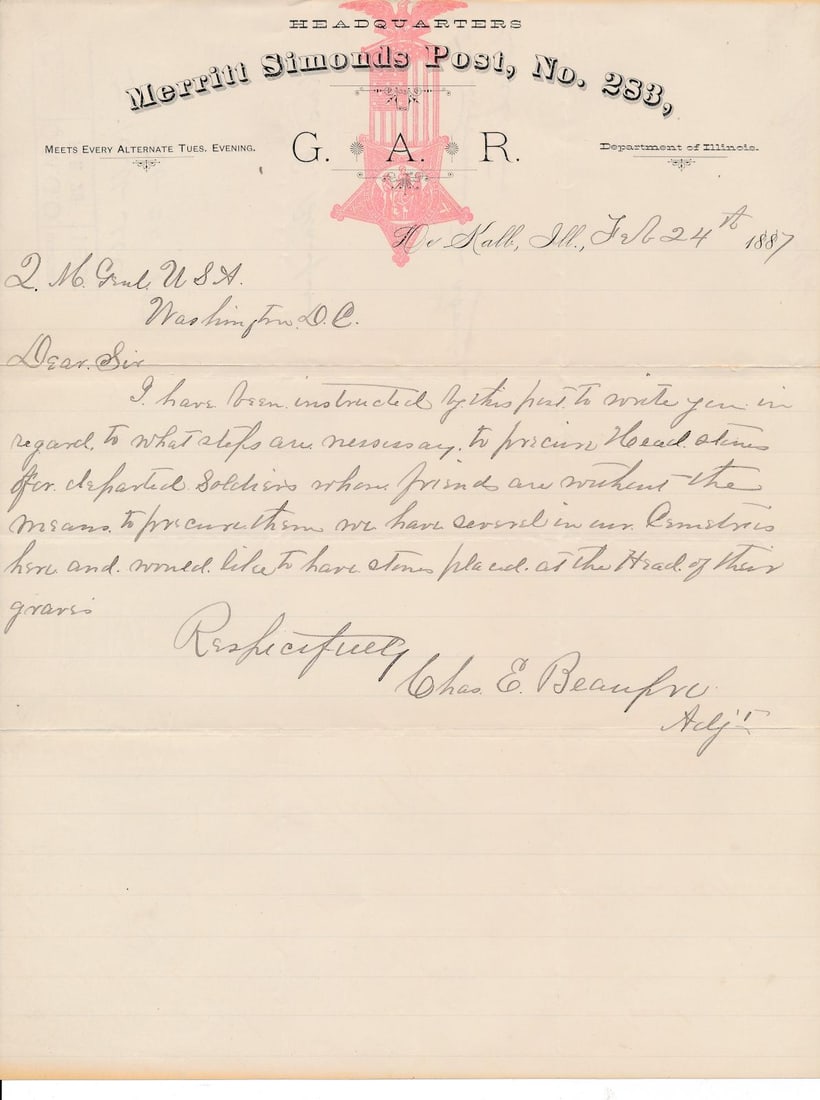 HEADQUARTERS
Merritt Simonds Post, No. 283,
MEETS EVERY ALTERNATE TUES. EVENING.
G. A. R.
Department of Illinois.
De Kalb, Ill., Feb 24th 1887
Q. M. Genl. U S A.
Washington. D. C.
Dear. Sir
I have been instructed by this post to write you in
regard to what steps are nessessary to procure Head stones
for departed Soldiers whose friends are without the
means to procure them we have several in our Cemetries
here and would like to have stones placed at the Head of their
graves
Respectfully
Chas. E. Beaupre
Adjt